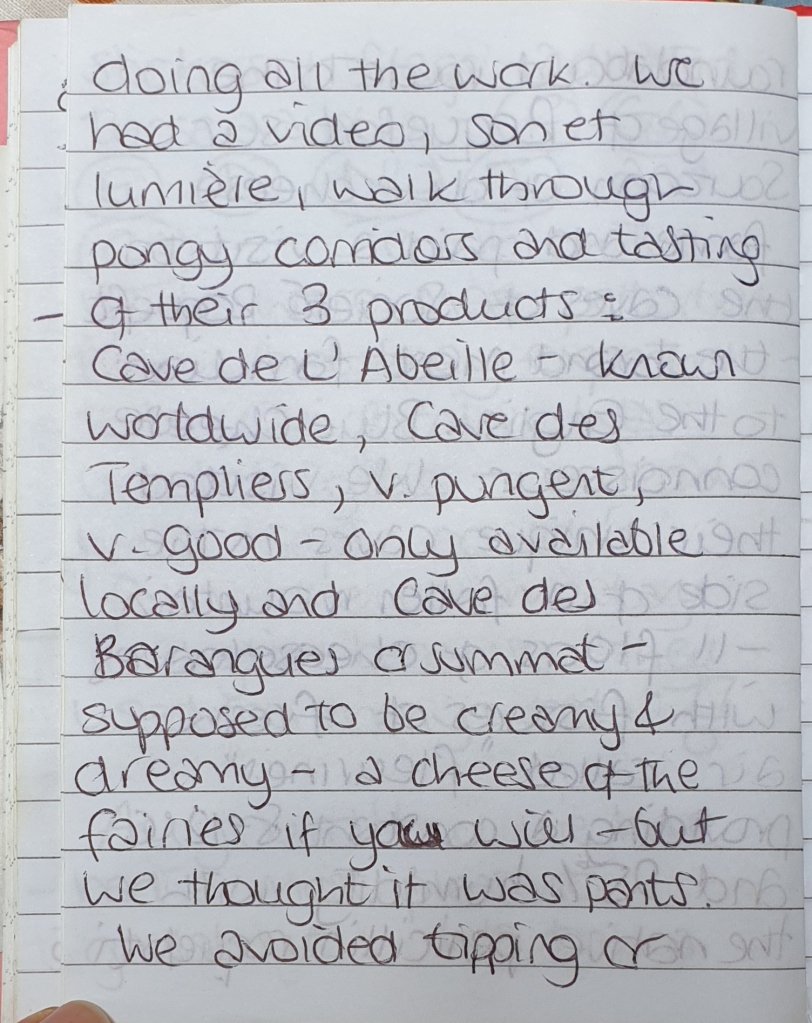 doing all the work. We
had a video, son et
lumière, walk through
pongy corridors and tasting
- of their 3 products :
Cave de L'Abeille - known
worldwide, Cave des
Templiers, v. pungent,
v. good - only available
locally and Cave des
Barangues or summat -
supposed to be creamy &
dreamy - a cheese of the
fairies if you will - but
we thought it was pants.
We avoided tipping or